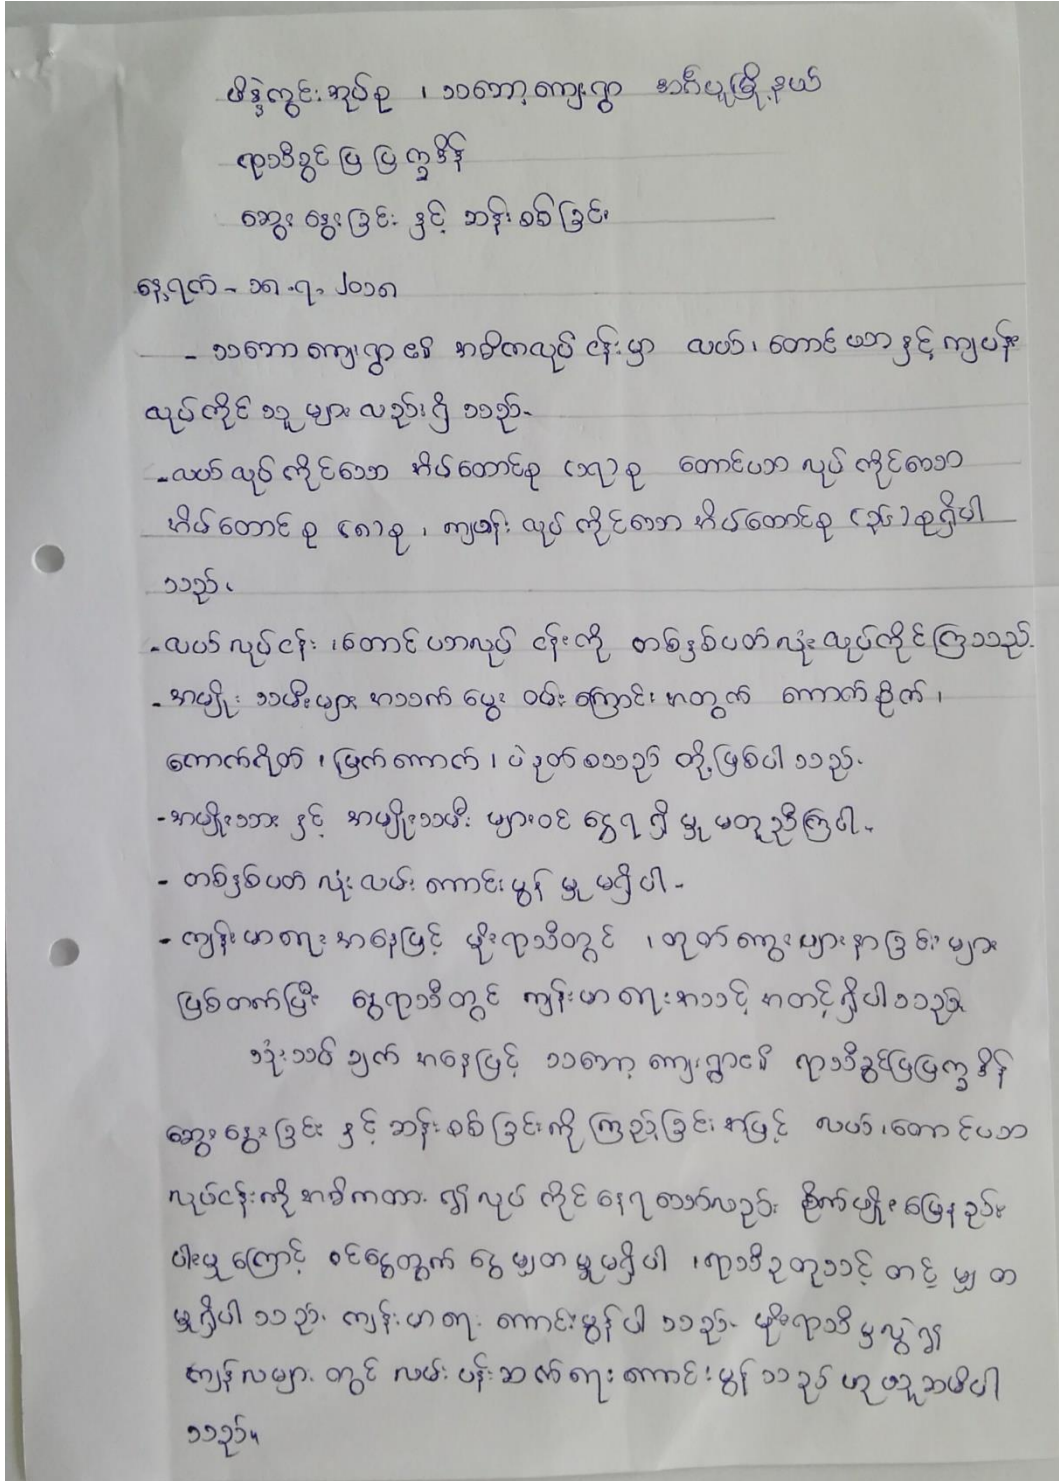 ဖိန္ဒဲကွင်းအုပ်စု ၊ သဘော့ကျေးရွာ အင်္ဂပူမြို့နယ်
ရာသီခွင်ပြ ပြက္ခဒိန်
ဆွေးနွေးခြင်း နှင့် ဆန်းစစ်ခြင်း
နေ့ရက် - ၁၈.၇.၂၀၁၈
- သဘော ကျေးရွာ ၏ အဓိကလုပ်ငန်းမှာ လယ်၊ တောင်ယာ နှင့် ကျပန်း
လုပ်ကိုင်သူများ လည်းရှိသည်-
- လယ်လုပ်ကိုင်သော အိမ်ထောင်စု (၁၇)စု တောင်ယာ လုပ်ကိုင်သော
အိမ်ထောင်စု (၈)စု ၊ ကျပန်း လုပ်ကိုင်သော အိမ်ထောင်စု စုရှိပါ
သည်။
- လယ်လုပ်ငန်း ၊တောင်ယာလုပ်ငန်းကို တစ်နှစ်ပတ်လုံး လုပ်ကိုင်ကြသည်-
- အမျိုးသမီးများ အသက်မွေး ဝမ်းကြောင်းအတွက် ကောက်စိုက်၊
ကောက်ရိတ် ၊ မြက်ကောက် ၊ ပဲနုတ် စသည် တို့ဖြစ်ပါသည်-
- အမျိုးသား နှင့် အမျိုးသမီး များဝင်ငွေရရှိမှု မတူညီကြပါ-
- တစ်နှစ်ပတ်လုံး လမ်းကောင်းမွန်မှု မရှိပါ -
- ကျန်းမာရေးအနေဖြင့် မိုးရာသီတွင် ၊ တုတ်ကွေးများနာခြင်းများ
ဖြစ်တက်ပြီး နွေရာသီတွင် ကျန်းမာရေးအသင့် အတင့်ရှိပါသည်။
သုံးသပ်ချက် အနေဖြင့် သဘော့ကျေးရွာ၏ ရာသီခွင်ပြပြက္ခဒိန်
ဆွေးနွေးခြင်း နှင့် ဆန်းစစ်ခြင်းကို ကြည့်ခြင်းအဖြင့် လယ်၊တောင်ယာ
လုပ်ငန်းကို အဓိကထား၍ လုပ်ကိုင်နေရသော်လည်း စိုက်ပျိုးမြေနည်း
ပါးမှုကြောင့် ဝင်ငွေထွက်ငွေ မျှတမှုမရှိပါ ၊ရာသီဥတုသင့်တင့်မျှတ
မှုရှိပါသည်။ ကျန်းမာရေး ကောင်းမွန်ပါသည်- မိုးရာသီမှလွဲ၍
ကျန်လများတွင် လမ်းပန်းဆက်ရေး ကောင်းမွန်သည် ဟုယူဆမိပါ
သည်။